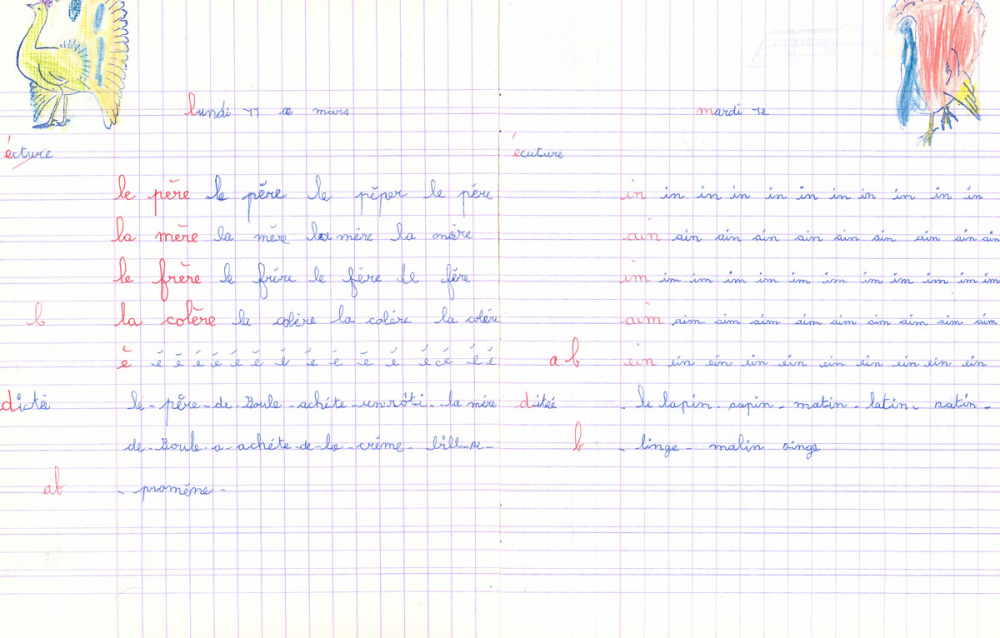 lundi 11 mars
écture
le père le père le pèper le père
la mère la mère la mère la mère
le frère le frère le fére le fère
b
la colère la colère la colère la colère
è é é é é é è é é é é é é é é é
dicté
le père de Boule achéte un rôti la mère
de Boule a achéte de la créme bill se
ab
promène
mardi 12
écuture
in in in in in in in in in in in
ain ain ain ain ain ain ain ain ain ain
im im im im im im im im im im im
aim aim aim aim aim aim aim aim aim aim
ab
ein ein ein ein ein ein ein ein ein ein
diteé
le lapin sapin matin latin satin
b
linge malin singe